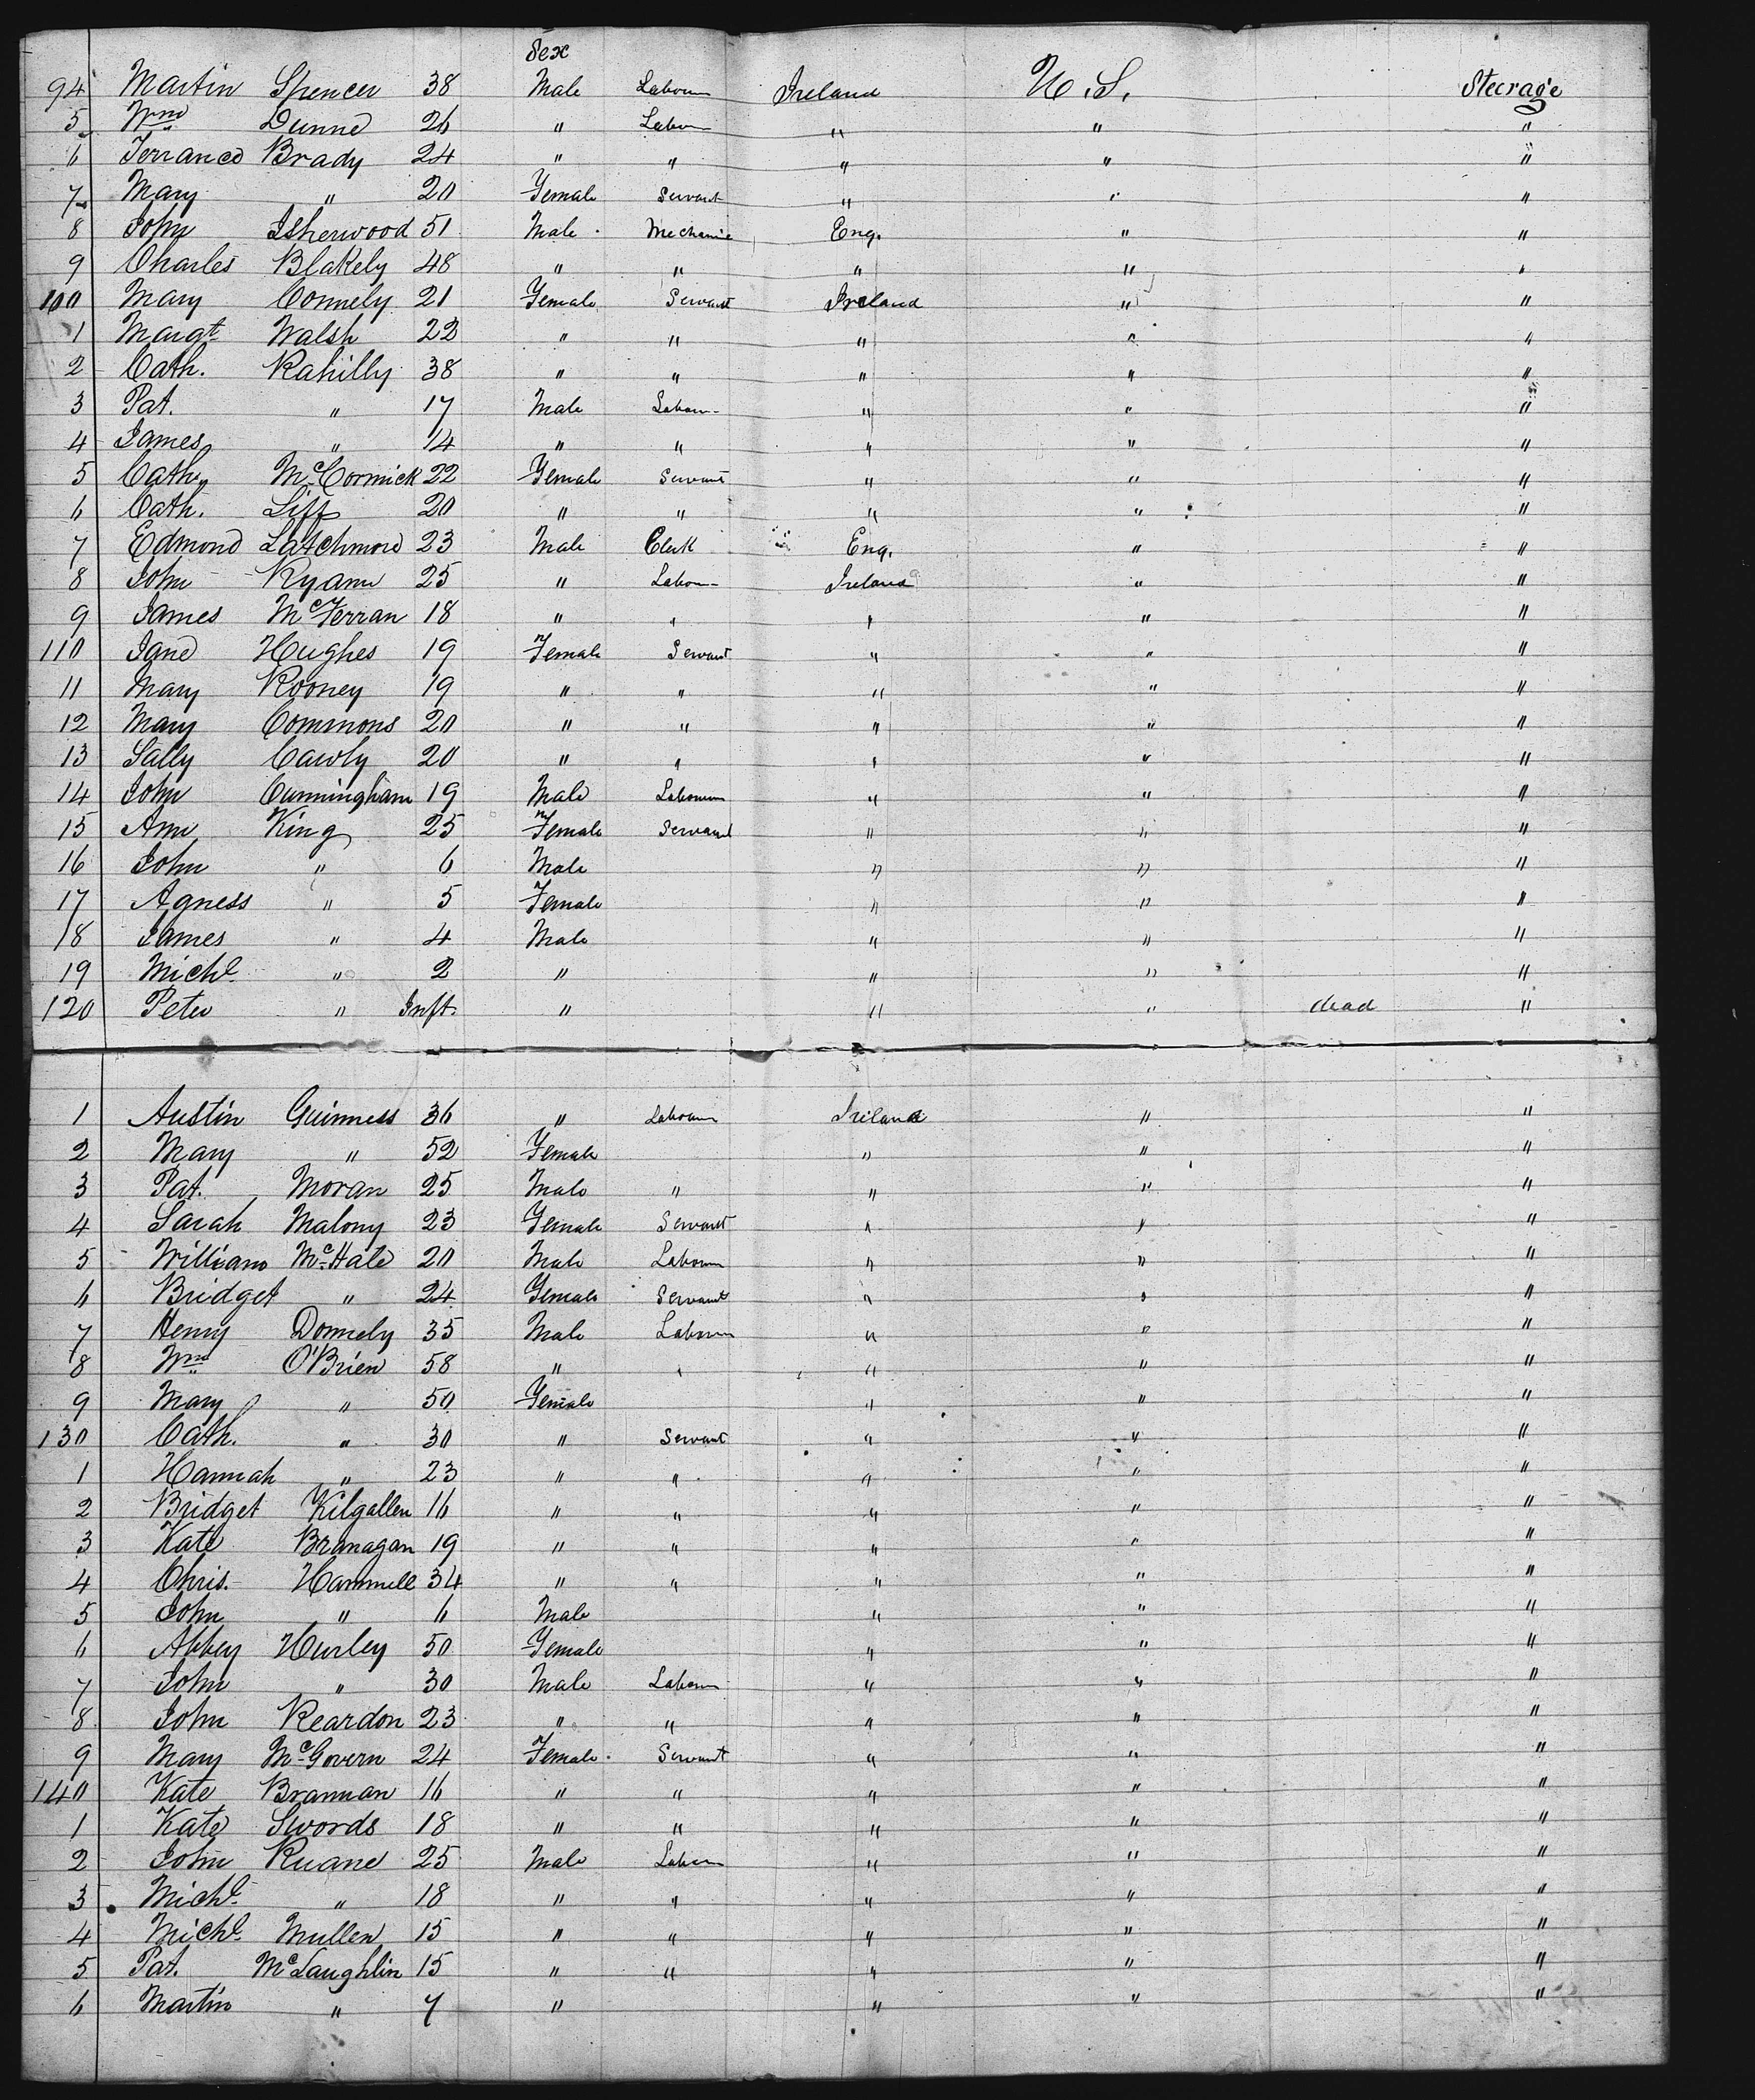 Sex
94 Martin Spencer 38 Male Labourer Ireland U.S. Steerage
5 Wm Dunne 26 " Labour " " "
6 Terrance Brady 24 " " " " "
7 Mary " 20 Female Servant " " "
8 John Isherwood 51 Male Mechanic Eng. " "
9 Charles Blakely 48 " " " " "
100 Mary Connely 21 Female Servant Ireland " "
1 Margt Walsh 22 " " " " "
2 Cath. Rahilly 38 " " " " "
3 Pat. " 17 Male Labour " " "
4 James " 14 " " " " "
5 Cath. McCormick 22 Female Servant " " "
6 Cath. Liff 20 " " " " "
7 Edmond Latchmore 23 Male Clerk Eng. " "
8 John Ryann 25 " Labour Ireland " "
9 James McFerran 18 " " " " "
110 Jane Hughes 19 Female Servant " " "
11 Mary Rooney 19 " " " " "
12 Mary Commons 20 " " " " "
13 Sally Cawly 20 " " " " "
14 John Cunningham 19 Male Labourer " " "
15 Ann King 25 Female Servant " " "
16 John " 6 Male " " "
17 Agness " 5 Female " " "
18 James " 4 Male " " "
19 Michl " 2 " " " "
120 Peter " Inft. " " " dead "
1 Austin Guinness 36 " Labourer Ireland " "
2 Mary " 52 Female " " "
3 Pat. Moran 25 Male " " " "
4 Sarah Malony 23 Female Servant " " "
5 William McHale 20 Male Labourer " " "
6 Bridget " 24 Female Servant " " "
7 Henry Donnely 35 Male Labourer " " "
8 Wm O'Brien 58 " " " " "
9 Mary " 50 Female " " "
130 Cath. " 30 " Servant " " "
1 Hannah " 23 " " " " "
2 Bridget Kilgallen 16 " " " " "
3 Kate Branagan 19 " " " " "
4 Chris. Hammill 34 " " " " "
5 John " 6 Male " " "
6 Abbey Hurley 50 Female " " "
7 John " 30 Male Labour " " "
8 John Reardon 23 " " " " "
9 Mary McGovern 24 Female Servant " " "
140 Kate Brannan 16 " " " " "
1 Kate Swords 18 " " " " "
2 John Ruane 25 Male Labour " " "
3 Michl " 18 " " " " "
4 Michl Mullen 15 " " " " "
5 Pat. McLaughlin 15 " " " " "
6 Martin " 7 " " " "